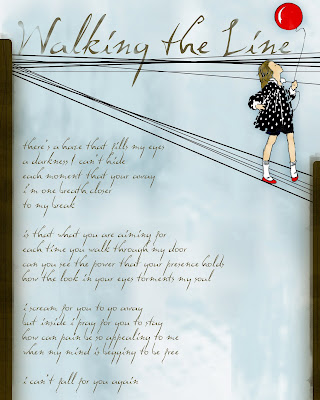 Walking the Line
there's a haze that fills my eyes
a darkness I can't hide
each moment that your away
i'm one breath closer
to my break
is that what you are aiming for
each time you walk through my door
can you see the power that your presence holds
how the look in your eyes torments my soul
i scream for you to go away
but inside i pray for you to stay
how can pain be so appealing to me
when my mind is begging to be free
i can't fall for you again